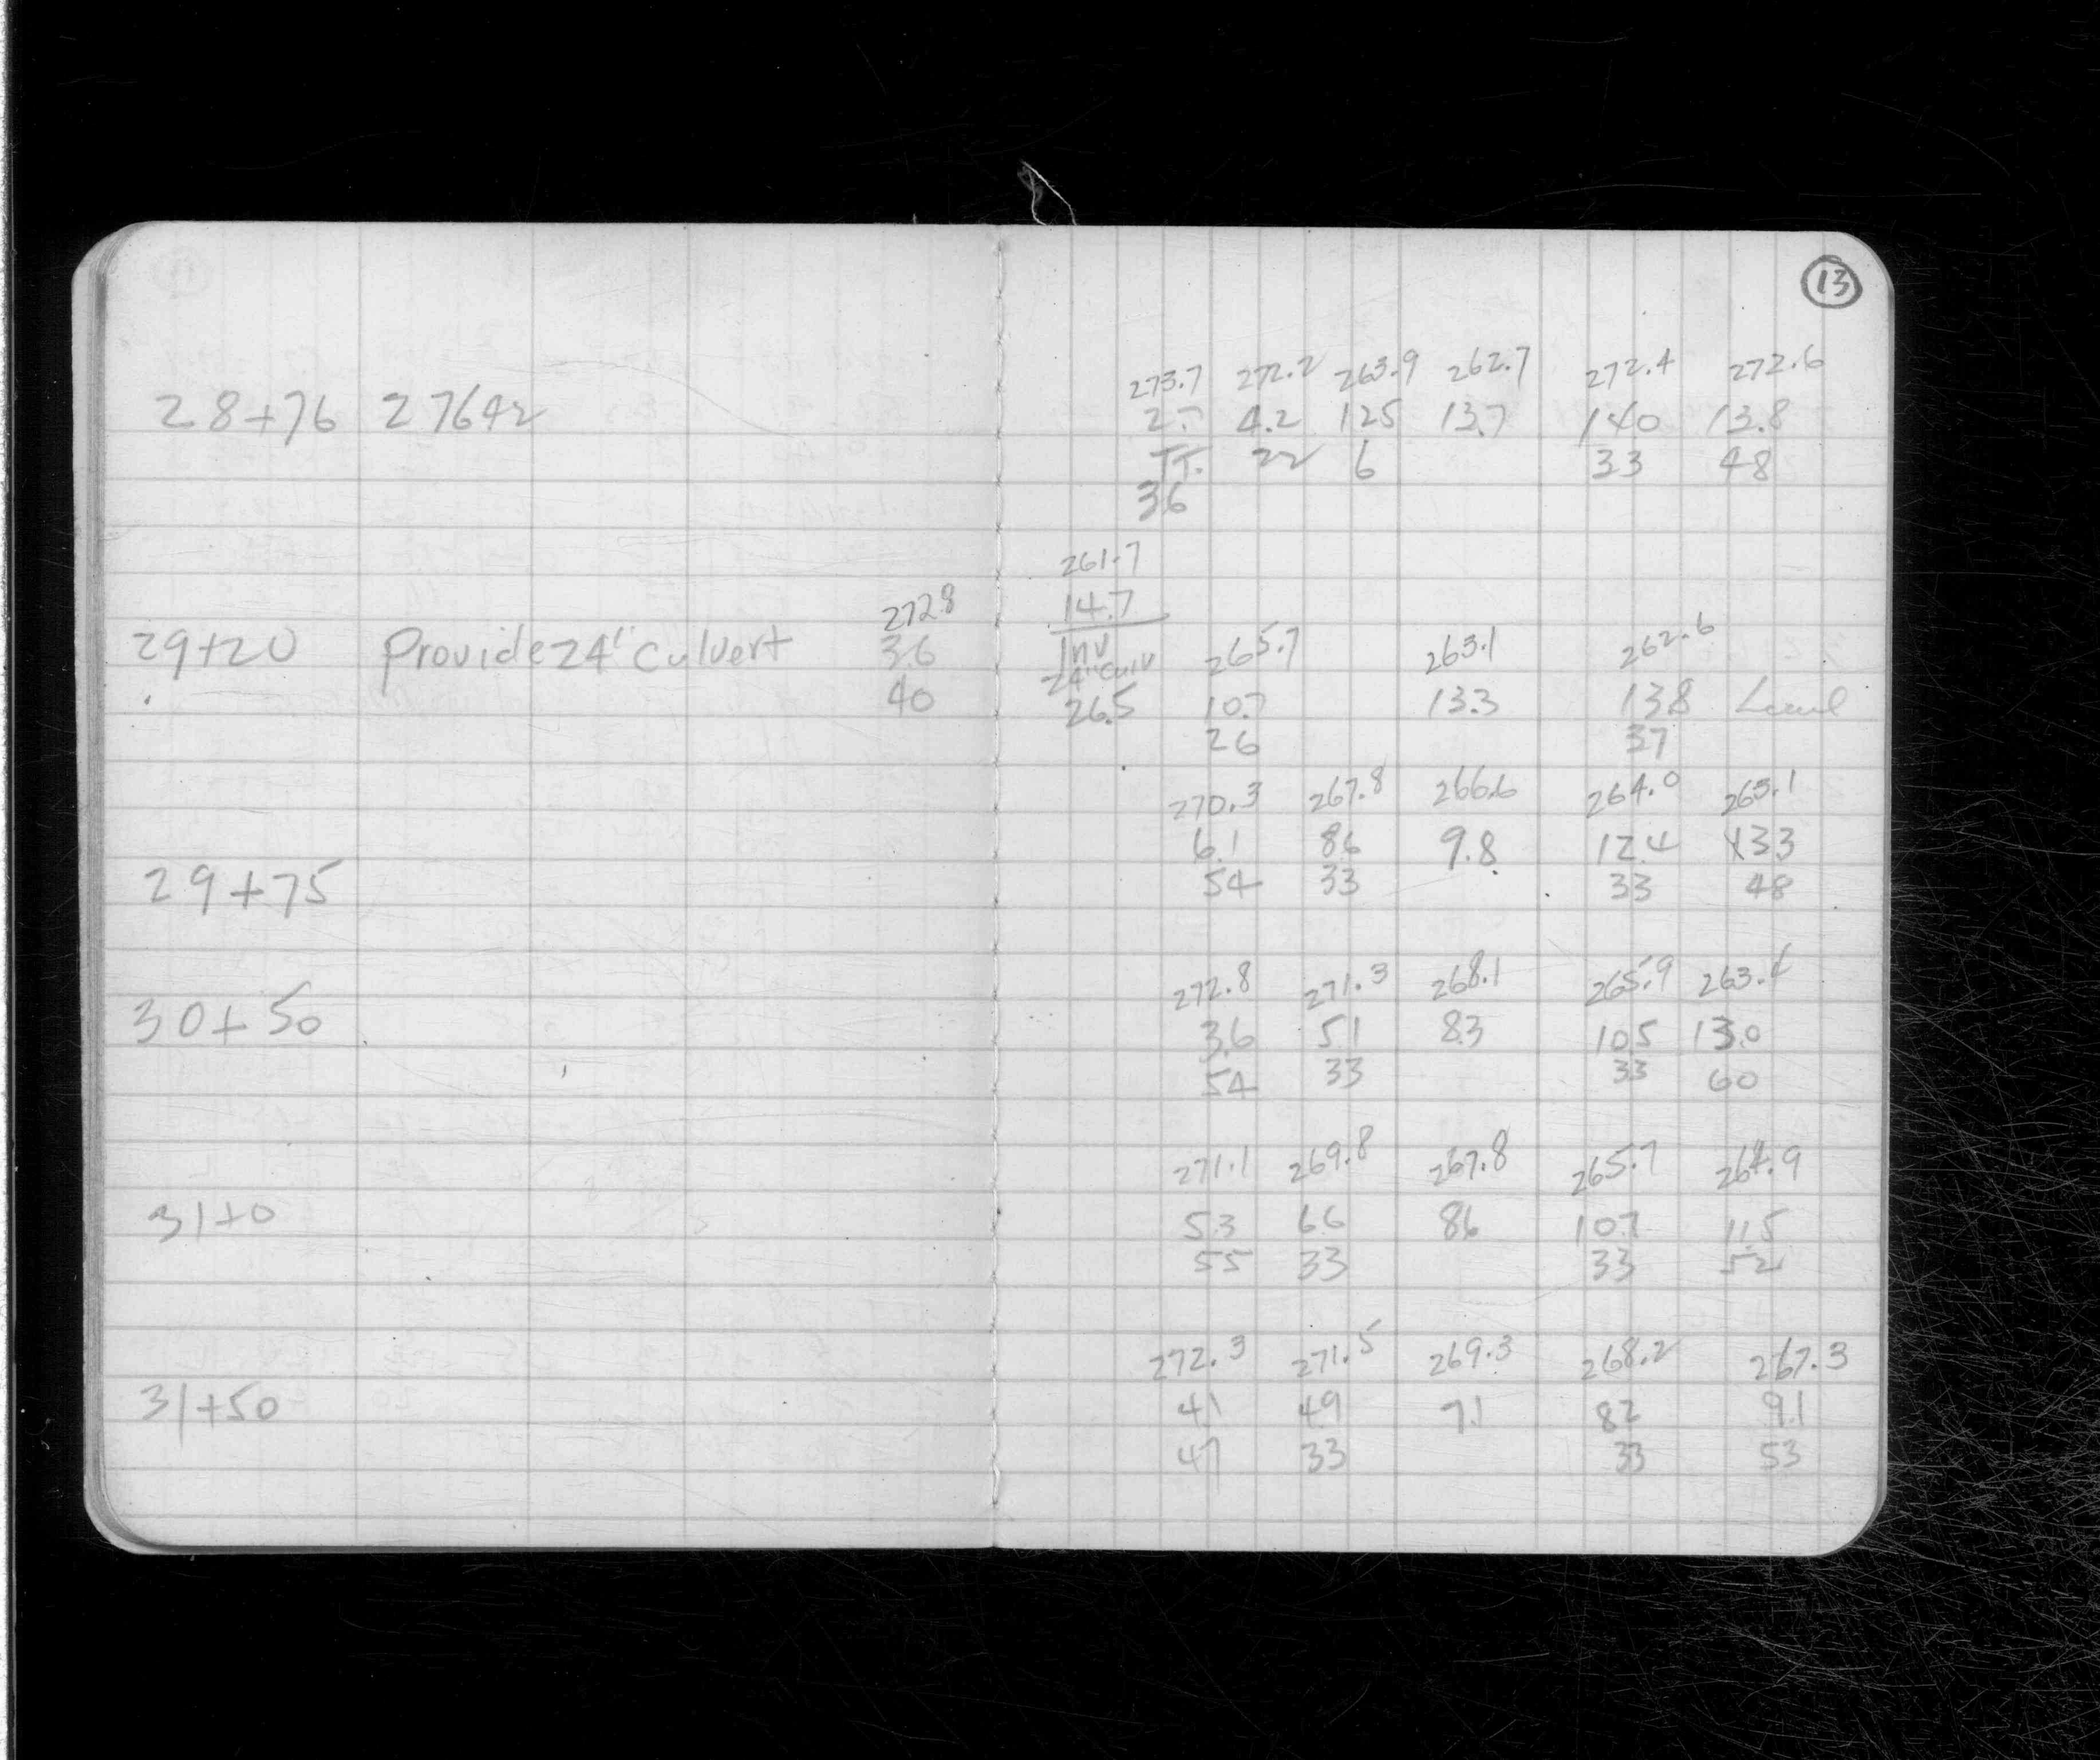 13
273.7 272.2 263.9 262.7 272.4 272.6
28+76 27642 2.7 4.2 125 13.7 140 13.8
TT. 22 6 33 48
36
261.7
272.8 14.7
29+20 Provide 24" Culvert 3.6 Inv 265.7 263.1 262.6
24" Culv
40 26.5 10.7 13.3 13.8 Level
26 37
270.3 267.8 266.6 264.0 263.1
6.1 86 9.8 12.4 133
29+75 54 33 33 48
272.8 271.3 268.1 265.9 263.4
30+50 3.6 51 83 105 13.0
54 33 33 60
271.1 269.8 267.8 265.7 264.9
31+0 5.3 66 86 107 11.5
55 33 33 52
272.3 271.5 269.3 268.2 267.3
31+50 41 49 7.1 82 9.1
47 33 33 53